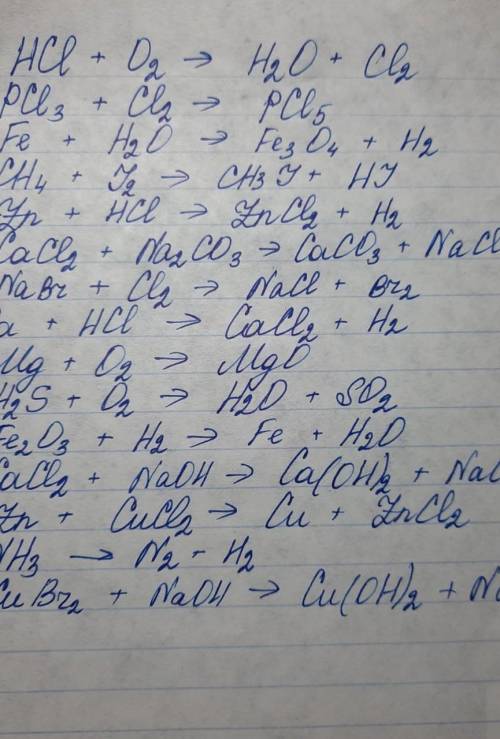 HCl + O₂ → H₂O + Cl₂
PCl₃ + Cl₂ → PCl₅
Fe + H₂O → Fe₃O₄ + H₂
CH₄ + J₂ → CH₃J + HJ
Zn + HCl → ZnCl₂ + H₂
CaCl₂ + Na₂CO₃ → CaCO₃ + NaCl
NaBr + Cl₂ → NaCl + Br₂
a + HCl → CaCl₂ + H₂
Mg + O₂ → MgO
H₂S + O₂ → H₂O + SO₂
Fe₂O₃ + H₂ → Fe + H₂O
CaCl₂ + NaOH → Ca(OH)₂ + NaC
Zn + CuCl₂ → Cu + ZnCl₂
NH₃ → N₂ - H₂
CuBr₂ + NaOH → Cu(OH)₂ + Na